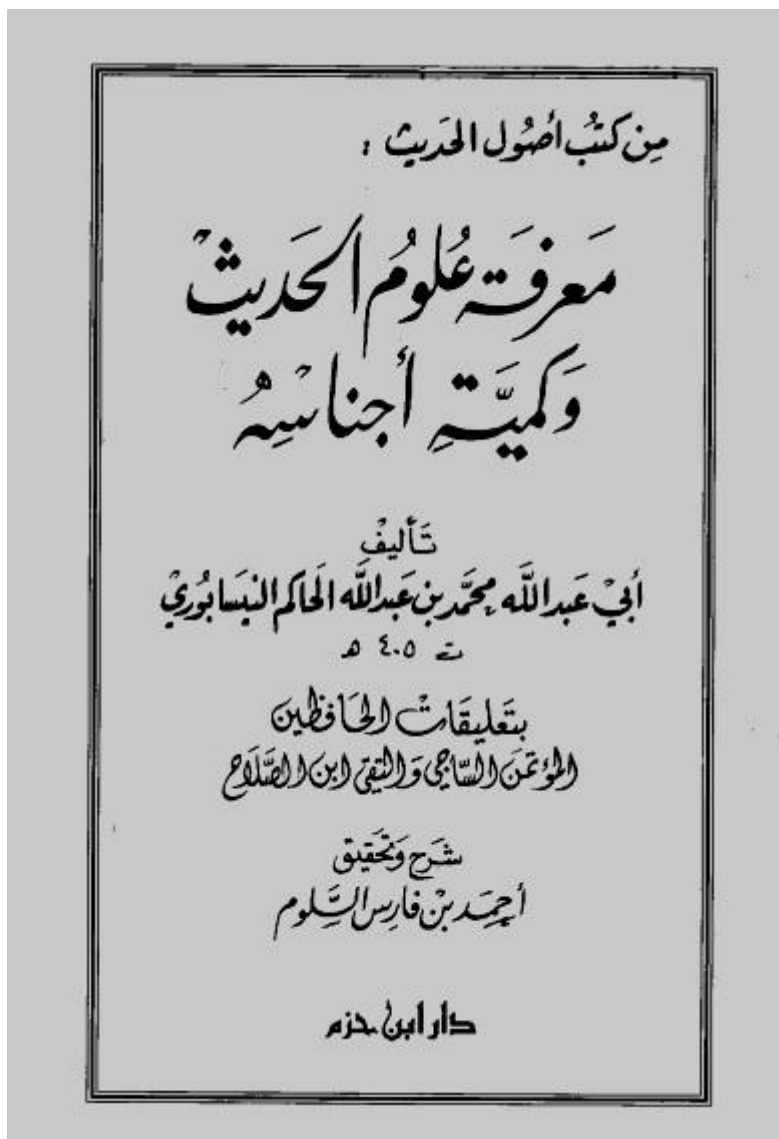 مِن كتُب أصُول الحَديث :
مَعرفَة عُلومُ الحَديثْ
وَكميَّةِ أجناسْهِ
تَأليفْ
أبيْ عَبدالله محمَّد بن عَبدالله الحَاكم النيسَابوُريْ
ت ٤٠٥ هـ
بتَعليقَاتْ الحَافظين
المؤتمَن السَّاجي وَالتقي ابن الصَّلاَح
شَرح وَتحَقيق
أحمَد بنْ فارس السَّلوم
دار ابن حزم